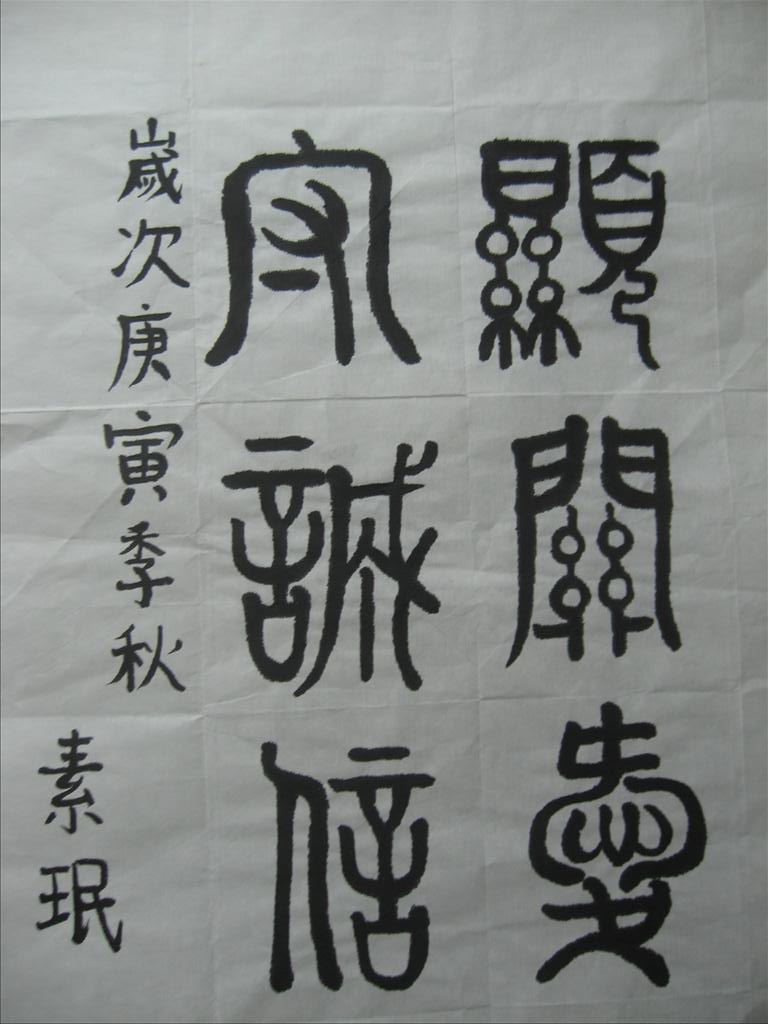 顯關愛
守誠信
歲次庚寅季秋
素珉